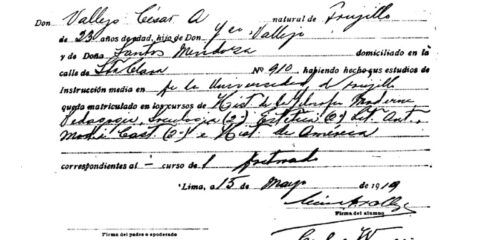 Don Vallejo César A natural de Trujillo
de 23 años de edad, hijo de Don Vallejo
y de Doña Santos Mendoza domiciliado en la
calle de Sta Clara Nº 910 habiendo hecho sus estudios de
Instrucción media en la Universidad de Trujillo
queda matriculado en los cursos de Hist de la Filosofía Moderna
Pedagogía, Sociología (2º) Estética (2º) Lit. Ant.
Cast (2º) e Hist. de América
correspondientes al curso de
Lima, a 15 de Mayo de 1919
Firma del alumno
Firma del padre o apoderado